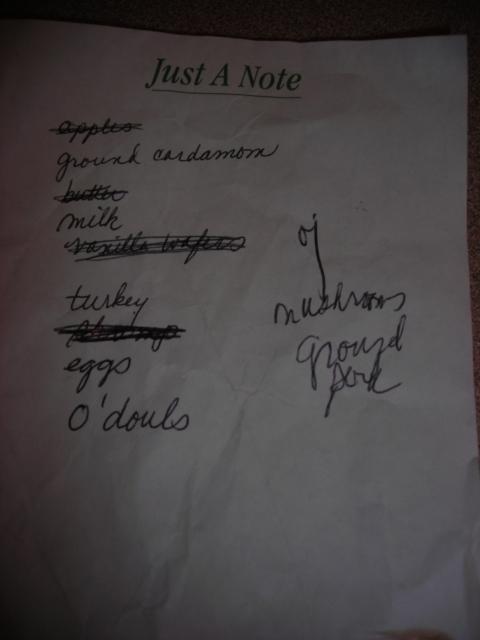 Just A Note
apples
ground cardamom
butter
milk
vanilla wafers
turkey
eggs
O'douls
oj
mushrooms
ground
pork